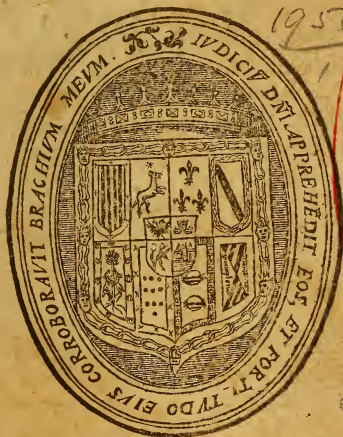 IVDICIṼ DÑI. APPREHĒDIT EOS, ET FORTI-TVDO EIVS CORROBORAVIT BRACHIVM MEVM.
195